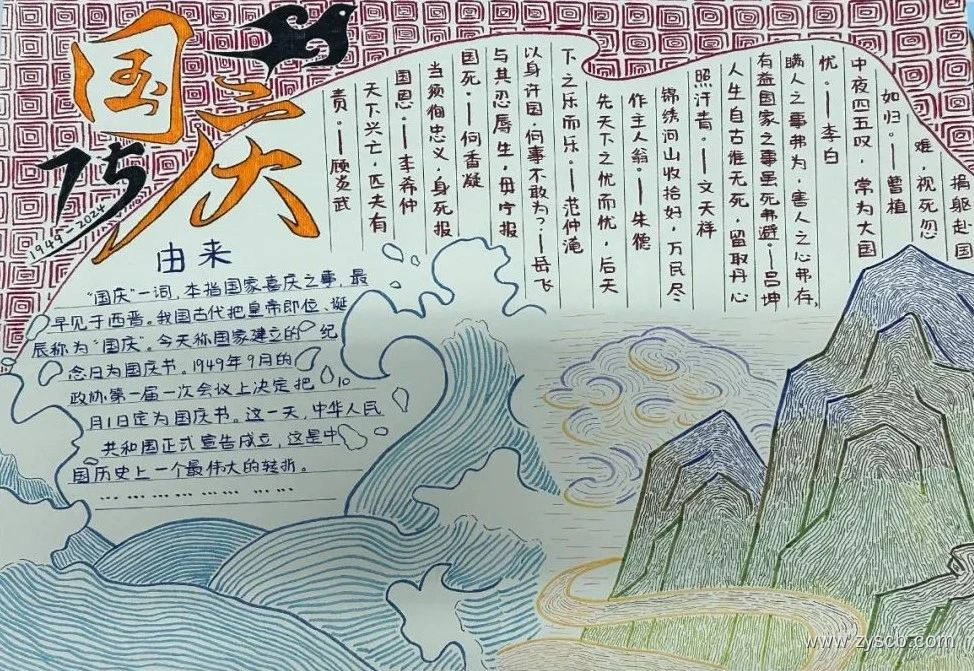 国庆
75
1949-2024
由来
"国庆"一词，本指国家喜庆之事，最
早见于西晋。我国古代把皇帝即位、诞
辰称为"国庆"。今天称国家建立的纪
念日为国庆节。1949年9月的
政协第一届一次会议上决定把10
月1日定为国庆节。这一天，中华人民
共和国正式宣告成立，这是中
国历史上一个最伟大的转折。
捐躯赴国
难，视死忽
如归。——曹植
中夜四五叹，常为大国
忧。——李白
瞒人之事弗为，害人之心弗存，
有益国家之事虽死弗避。——吕坤
人生自古谁无死，留取丹心
照汗青。——文天祥
锦绣河山收拾好，万民尽
作主人翁。——朱德
先天下之忧而忧，后天
下之乐而乐。——范仲淹
以身许国，何事不敢为？——岳飞
与其忍辱生，毋宁报
国死。——何香凝
当须徇忠义，身死报
国恩。——李希仲
天下兴亡，匹夫有
责。——顾炎武
www.zyscb.com